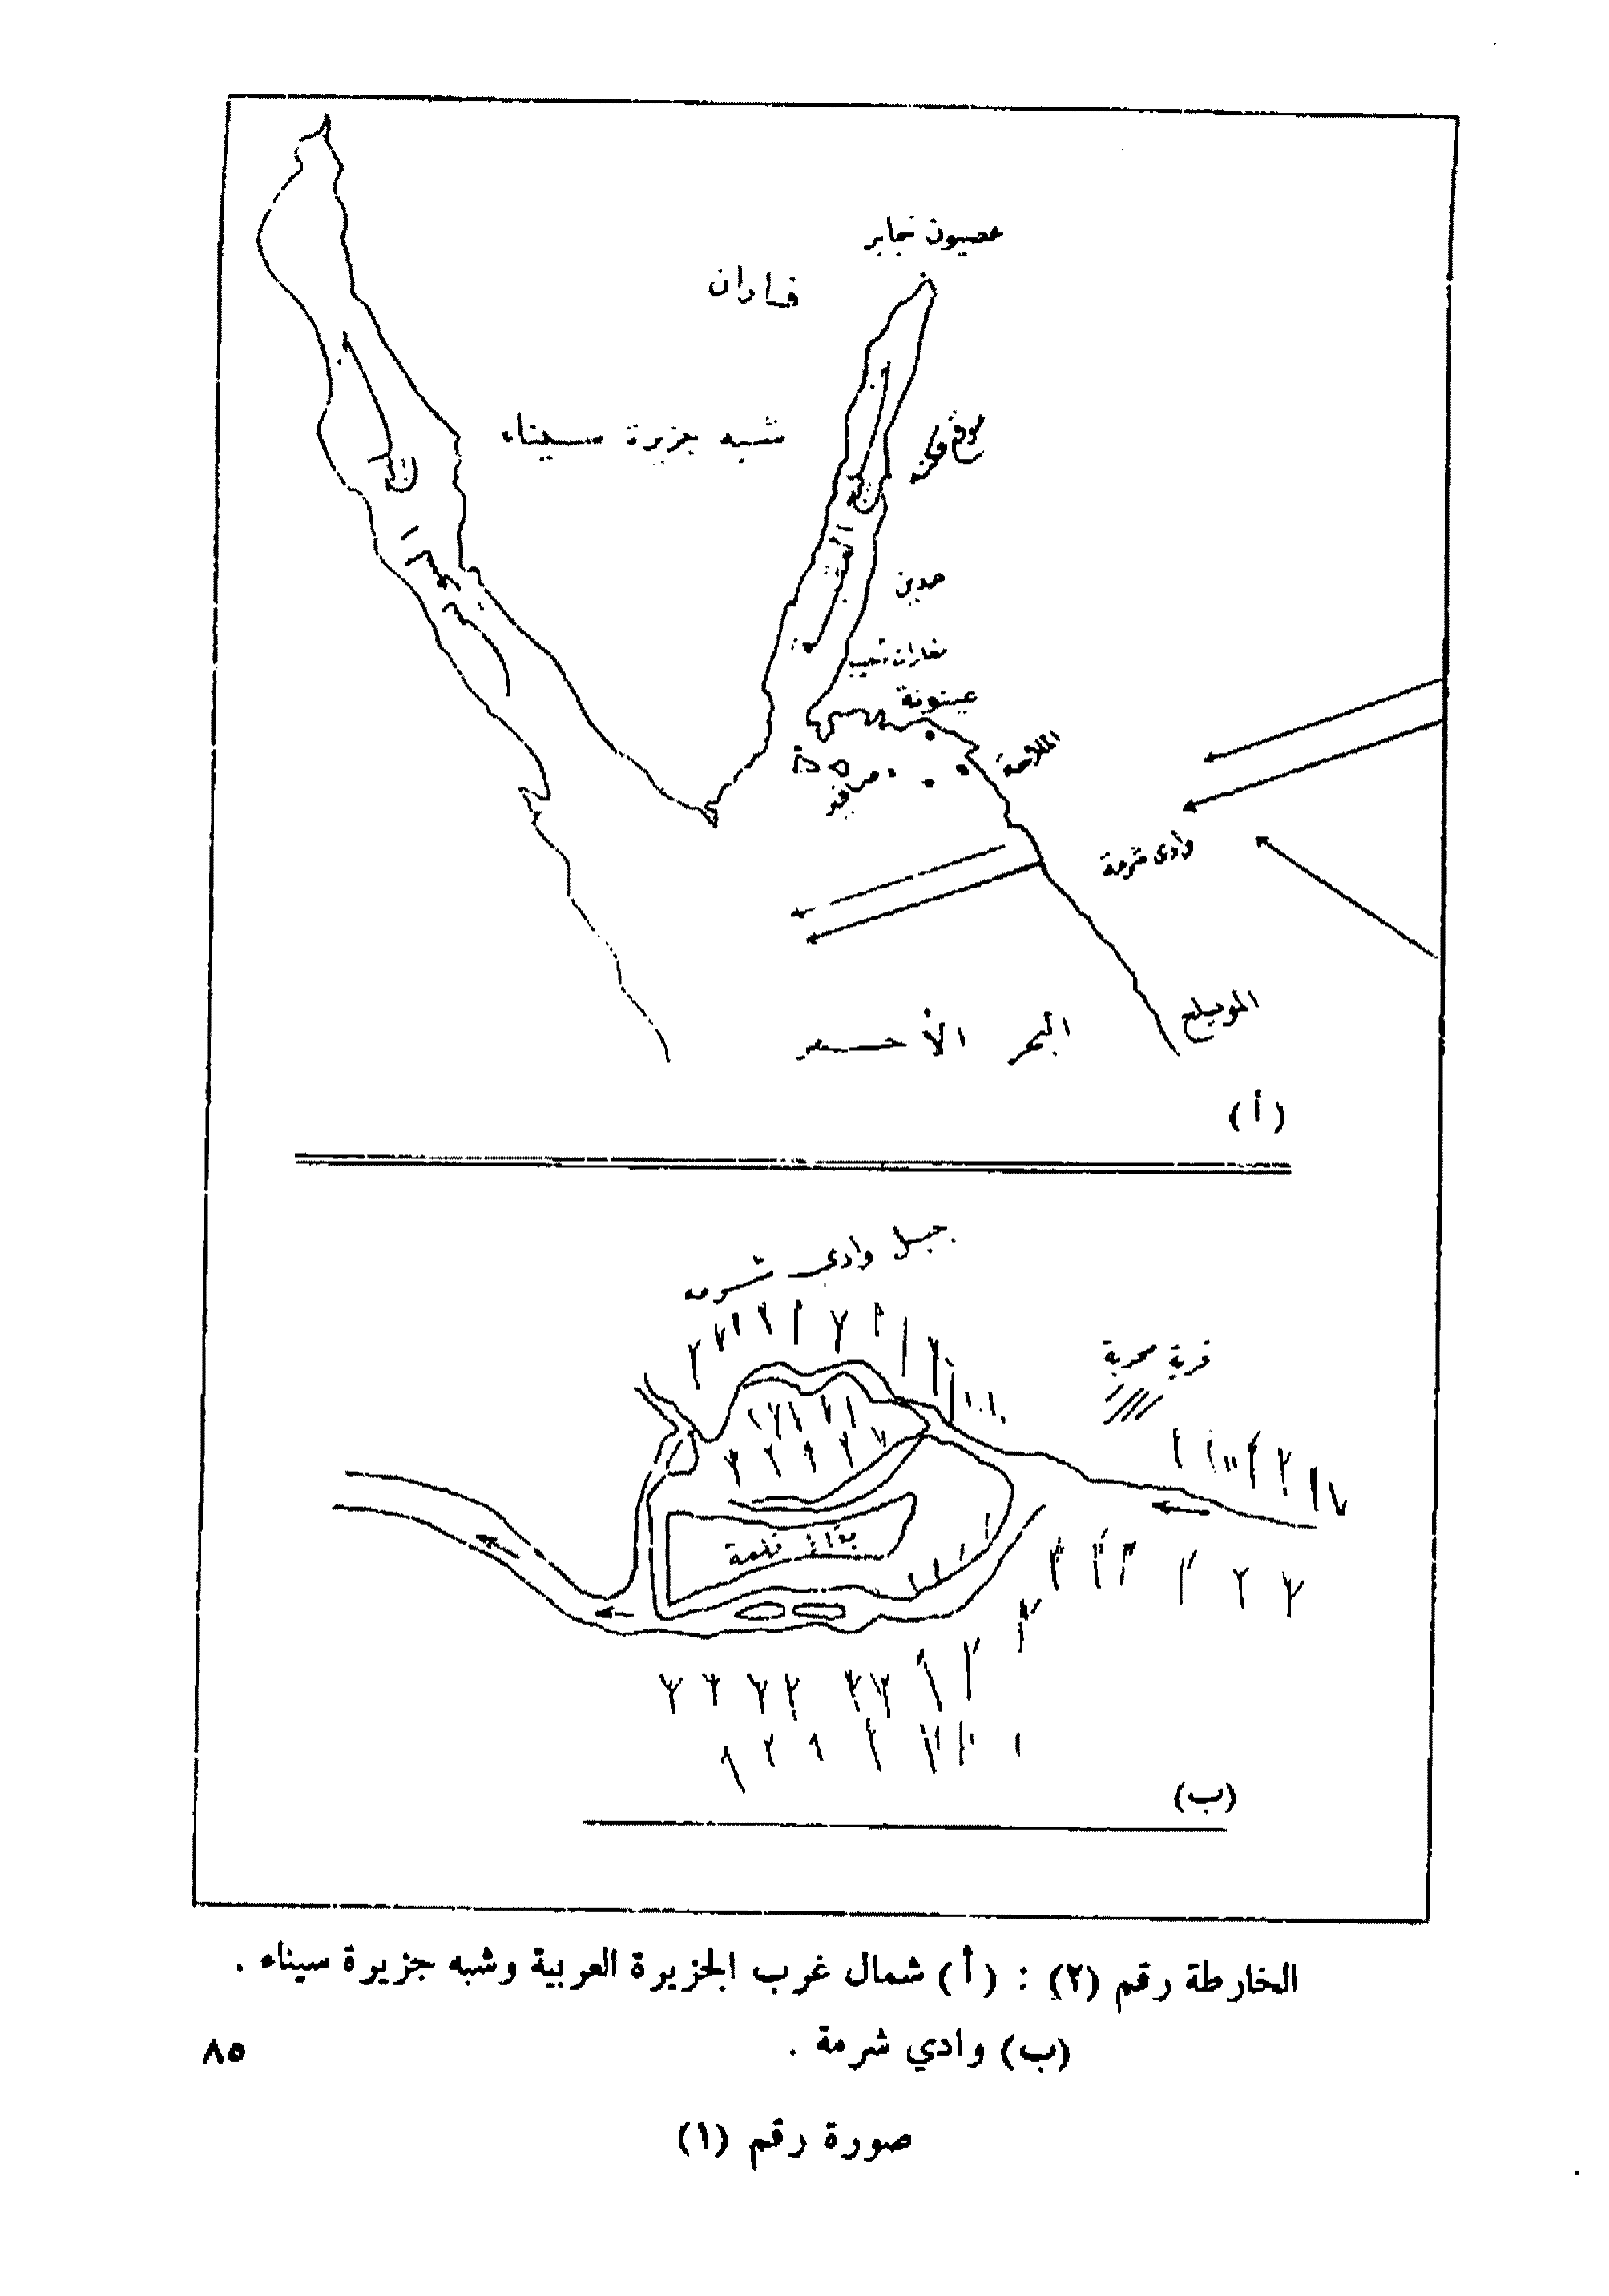 عصيون جابر
فاران
شبه جزيرة سيناء
مدين
مغارات شعيب
عينونة
وادي شرمة
المويلح
البحر الأحمر
(أ)
جبل وادي شرمه
قرية مخربة
بقايا قلعة
(ب)
الخارطة رقم (٢) : (أ) شمال غرب الجزيرة العربية وشبه جزيرة سيناء .
(ب) وادي شرمة .
٨٥
صورة رقم (١)